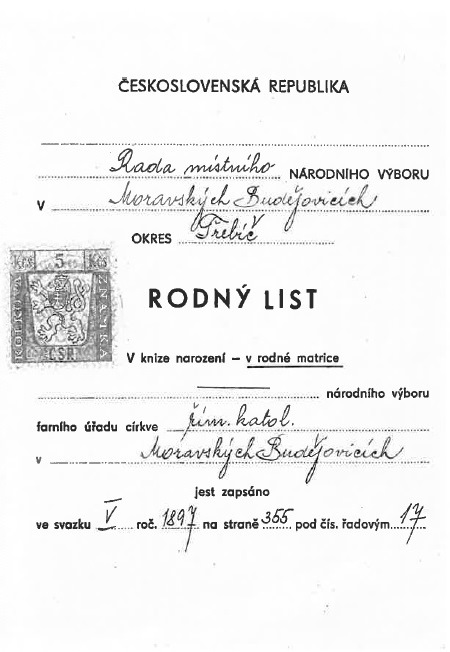 ČESKOSLOVENSKÁ REPUBLIKA
Rada místního NÁRODNÍHO VÝBORU
V Moravských Budějovicích
OKRES Třebíč
Kčs 5 Kčs
KOLKOVÁ ZNÁMKA
ČSR
RODNÝ LIST
V knize narození – v rodné matrice
národního výboru
farního úřadu církve řím. katol.
v Moravských Budějovicích
jest zapsáno
ve svazku V roč. 1897 na straně 355 pod čís. řadovým 17